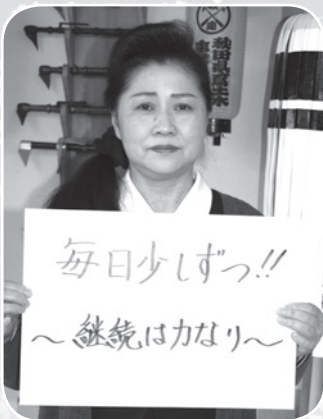 毎日少しずつ!!
～継続は力なり～